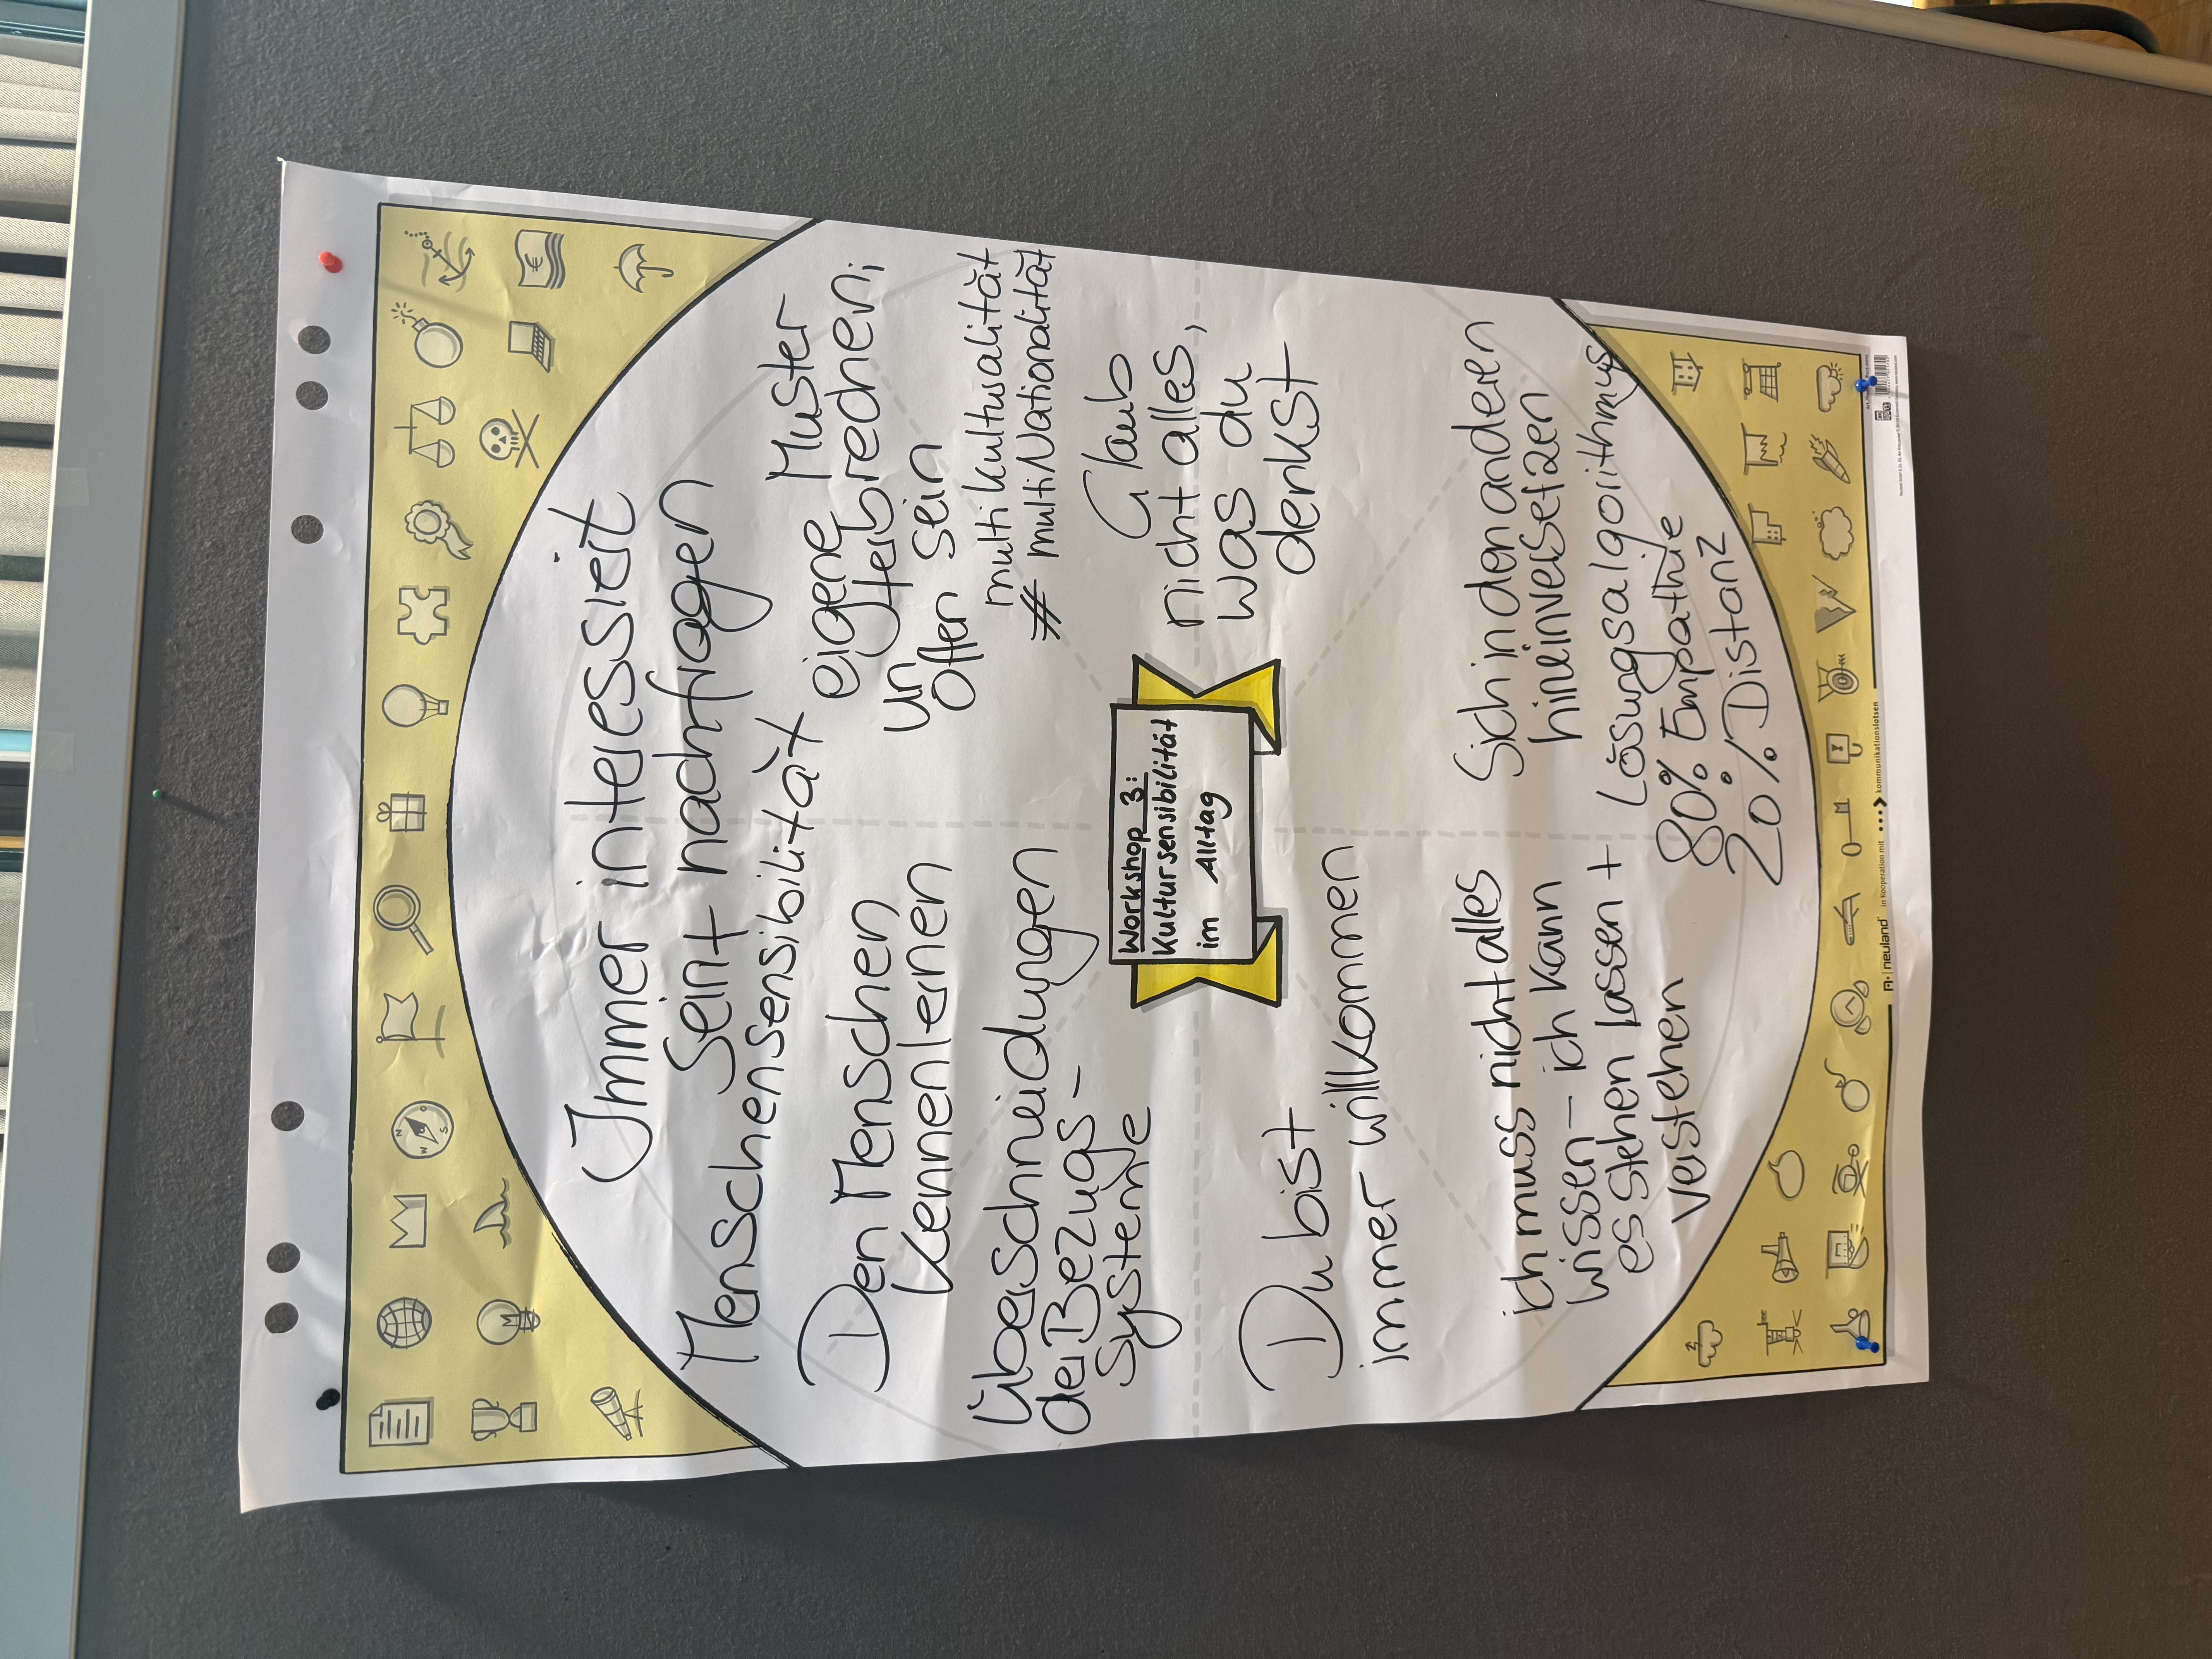 Immer interessiert
sein + nachfragen
Menschensensibilität
Den Menschen
kennenlernen
Überschneidungen
der Bezugs-
systeme
eigene Muster
unterbrechen;
offen sein
multikulturalität
≠ multiNationalität
Glaub
nicht alles,
was du
denkst
Workshop 3:
Kultursensibilität
im Alltag
Du bist
immer willkommen
ich muss nicht alles
wissen - ich kann
es stehen lassen +
verstehen
Sich in den anderen
hineinversetzen
Lösungsalgorithmus
80% Empathie
20% Distanz
neuland
in Kooperation mit kommunikationslotsen